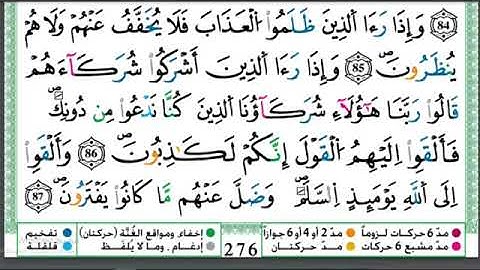 ٨٤ وَإِذَا رَءَا الَّذِينَ ظَلَمُوا۟ الْعَذَابَ فَلَا يُخَفَّفُ عَنْهُمْ وَلَا هُمْ
يُنظَرُونَ ٨٥ وَإِذَا رَءَا الَّذِينَ أَشْرَكُوا۟ شُرَكَآءَهُمْ
قَالُوا۟ رَبَّنَا هَٰٓؤُلَآءِ شُرَكَآؤُنَا الَّذِينَ كُنَّا نَدْعُوا۟ مِن دُونِكَ ۖ
فَأَلْقَوْا۟ إِلَيْهِمُ الْقَوْلَ إِنَّكُمْ لَكَٰذِبُونَ ٨٦ وَأَلْقَوْا۟
إِلَى اللَّهِ يَوْمَئِذٍ السَّلَمَ ۖ وَضَلَّ عَنْهُم مَّا كَانُوا۟ يَفْتَرُونَ ٨٧
مدّ 6 حركات لزوماً مدّ 2 أو 4 أو 6 جوازاً إخفاء ومواقع الغُنَّة (حركتان) تفخيم
مدّ مشبع 6 حركات مدّ حركتان 276 إدغام . وما لا يُلفَظ قلقلة